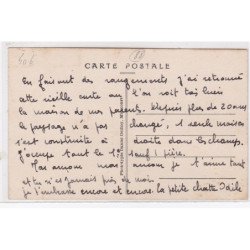 406
88
CARTE POSTALE
En faisant des rangements j'ai retrouvé
cette vieille carte où l'on voit tai
la maison de mes parents. Depuis plus de 20 ans
le paysage n'a pas changé, 1 seule maison
s'est construite à droite dans les champs.
J'occupe tout le 1er sauf 1 pièce.
mon je t'aime tant
et tu n'es jamais près de moi.
je t'embrasse encore et encore la petite chatte